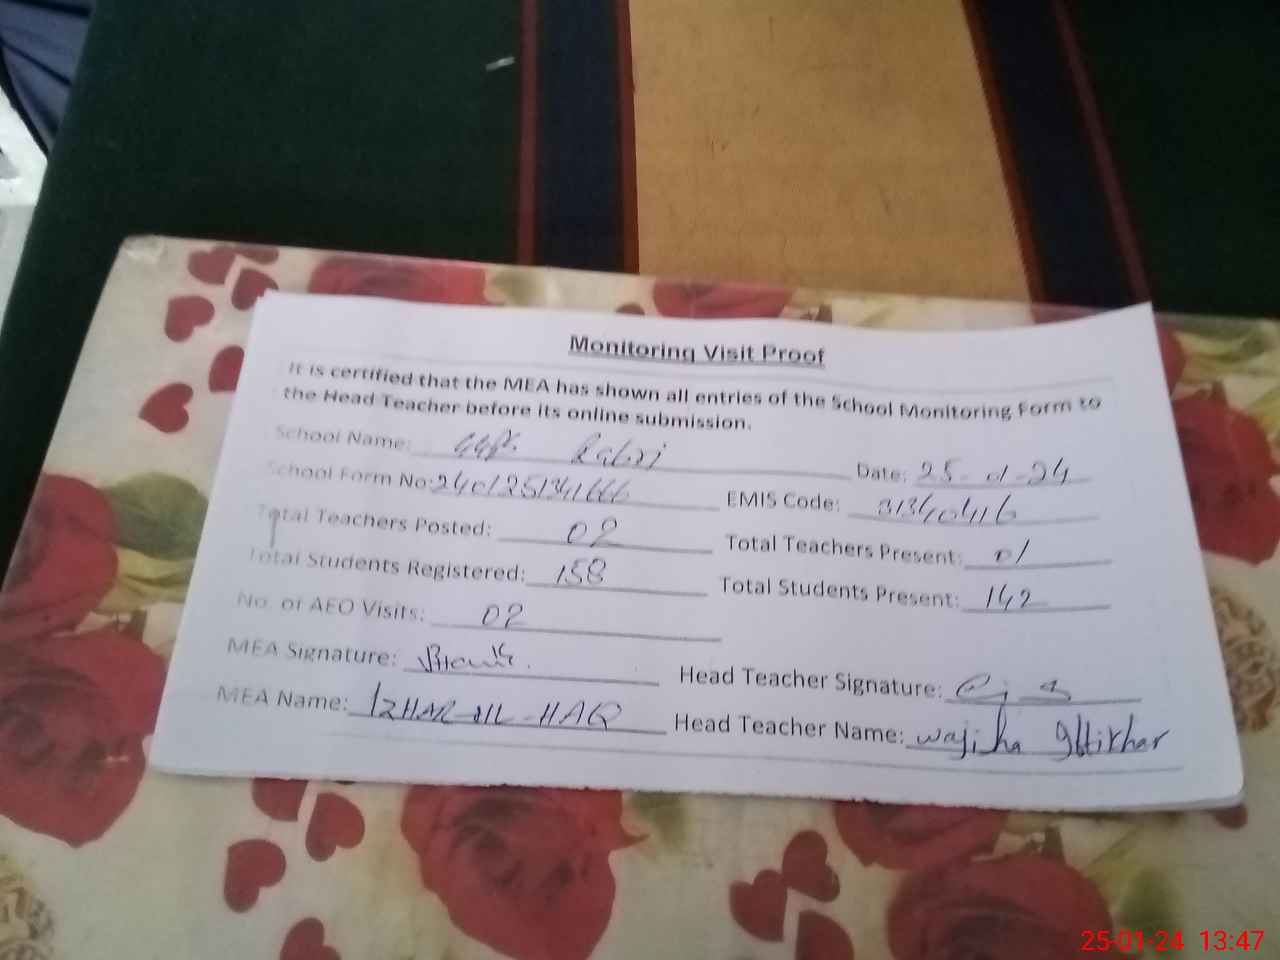 Monitoring Visit Proof
It is certified that the MEA has shown all entries of the School Monitoring Form to
the Head Teacher before its online submission.
School Name: Date: 25-01-24
School Form No: EMIS Code: 31340416
Total Teachers Posted: 02 Total Teachers Present: 01
Total Students Registered: 158 Total Students Present: 142
No. of AEO Visits: 02
MEA Signature: Head Teacher Signature:
MEA Name: IZHAR-UL-HAQ Head Teacher Name: Wajiha Iftikhar
25-01-24 13:47